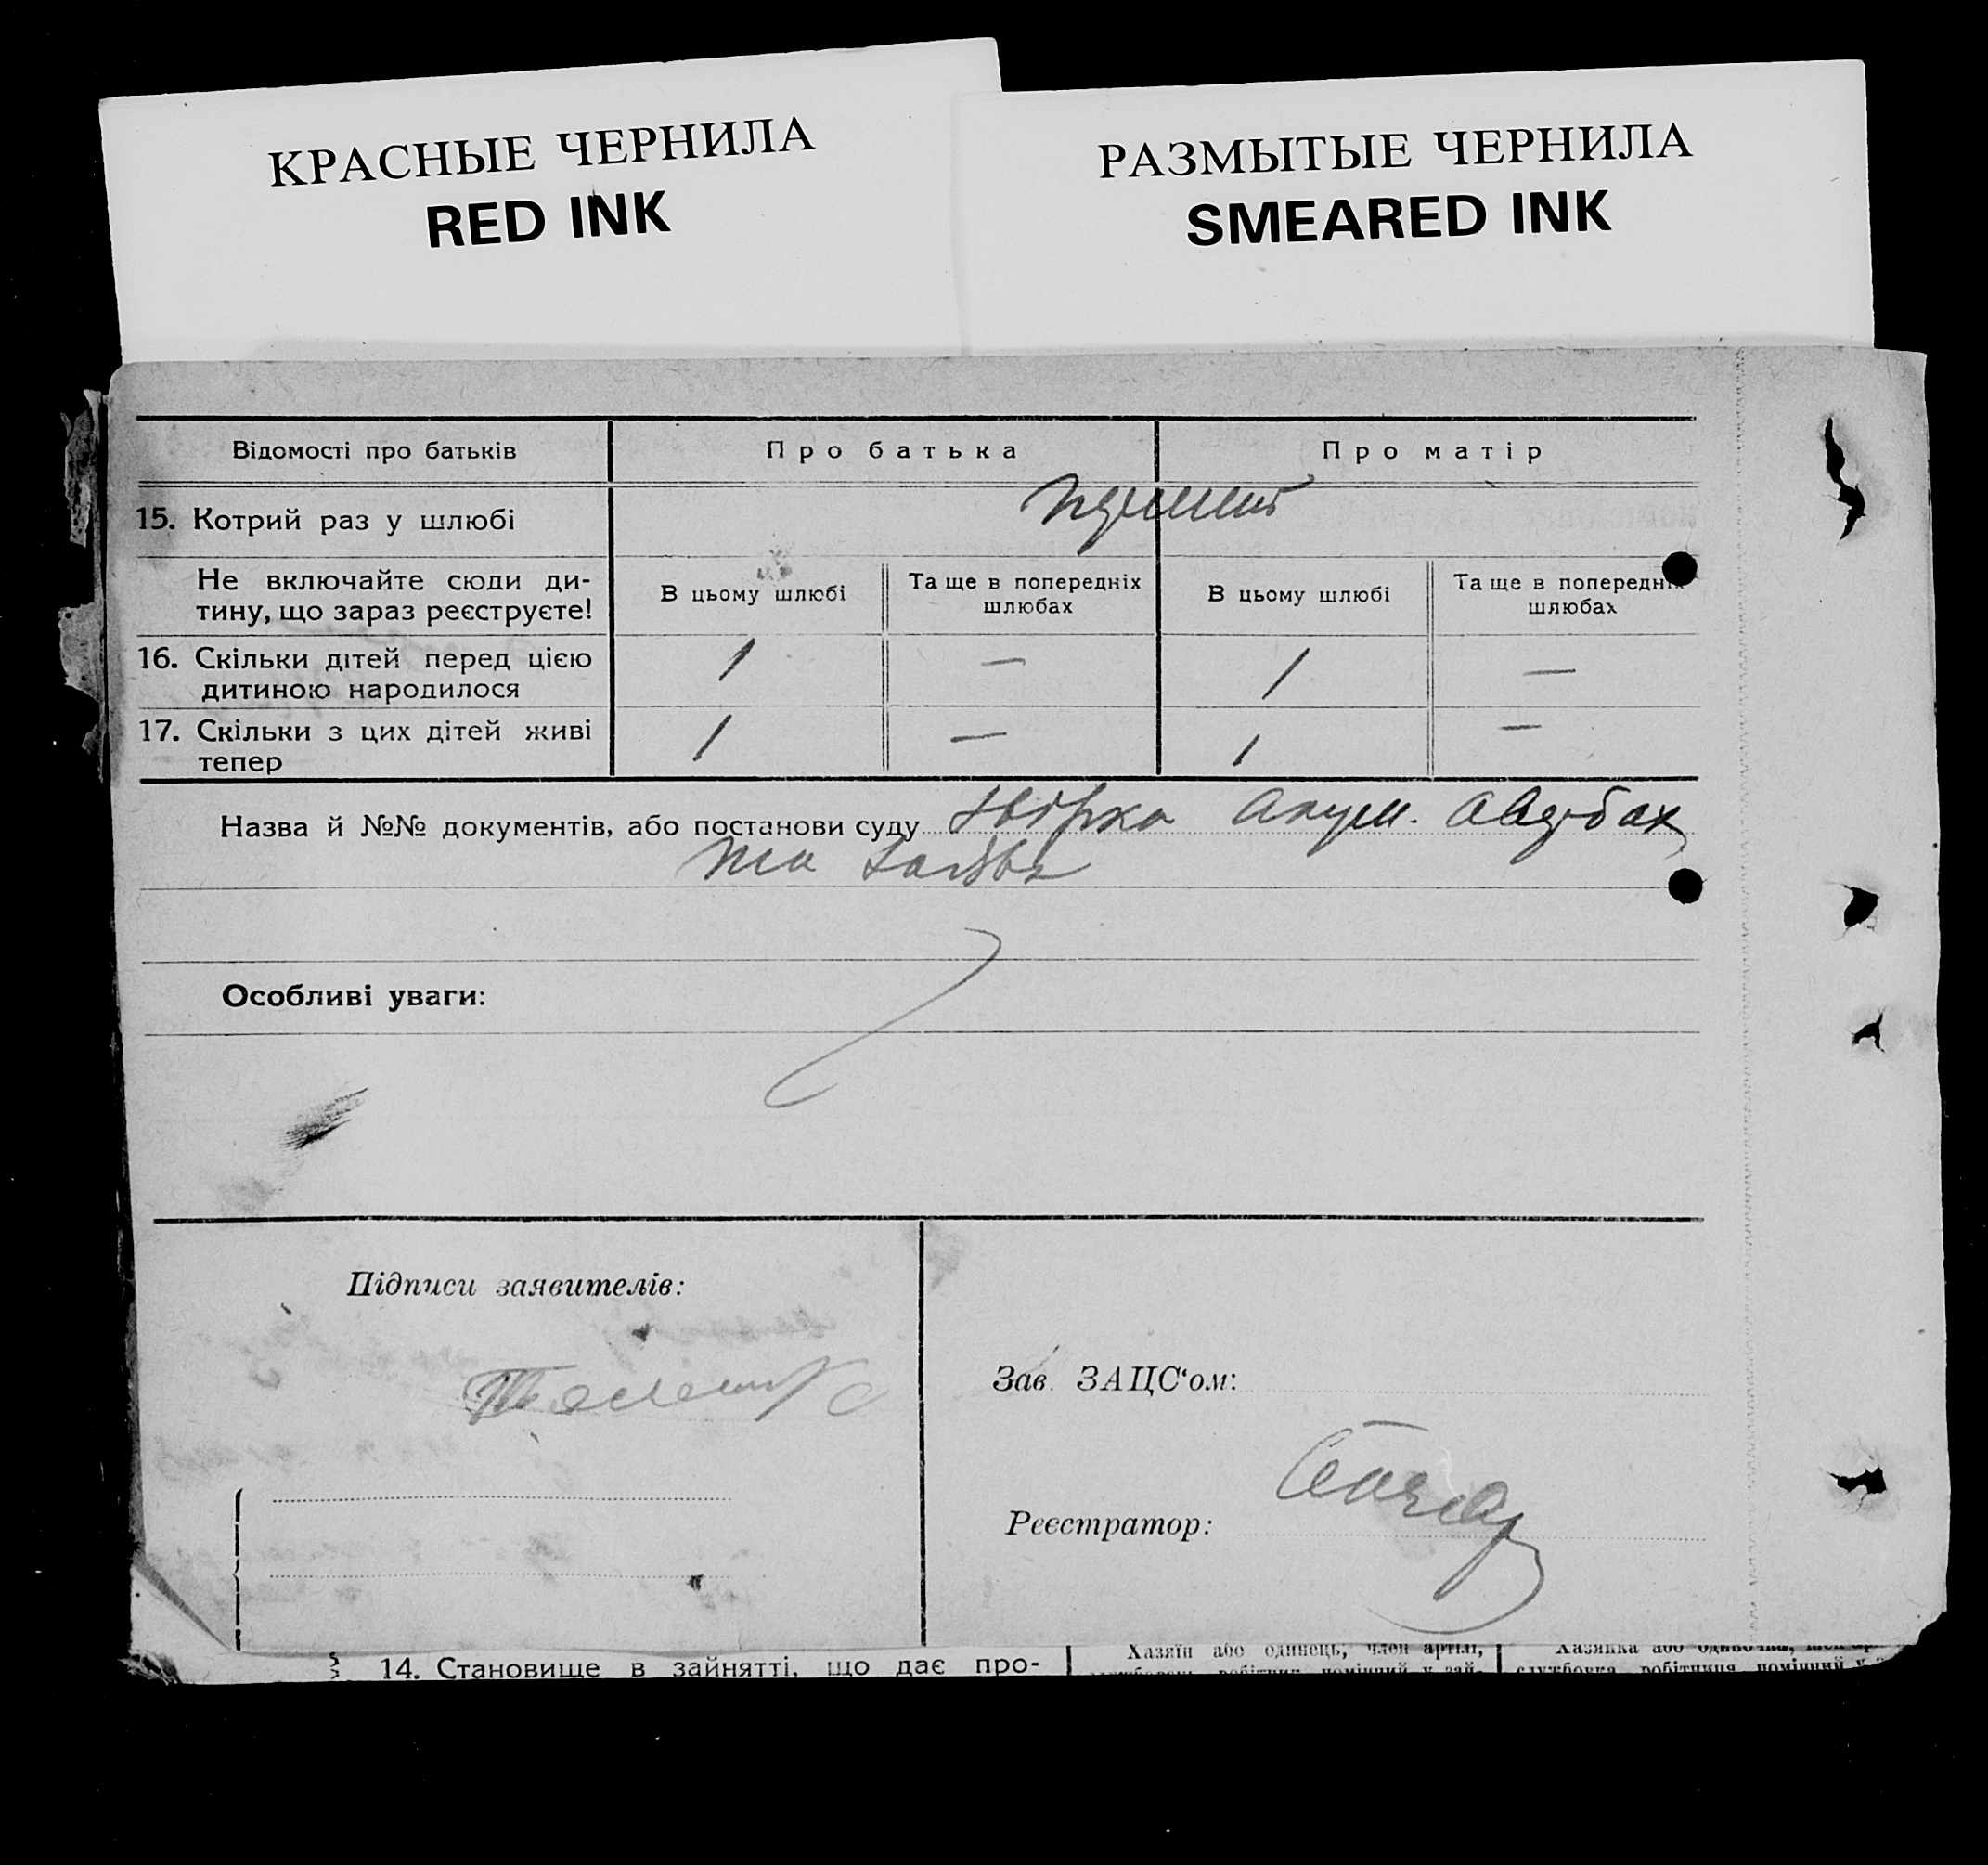 КРАСНЫЕ ЧЕРНИЛА
RED INK
РАЗМЫТЫЕ ЧЕРНИЛА
SMEARED INK
Відомості про батьків Про батька Про матір
15. Котрий раз у шлюбі
Не включайте сюди ди-
тину, що зараз реєструєте!
В цьому шлюбі
Та ще в попередніх
шлюбах
В цьому шлюбі
Та ще в попередніх
шлюбах
16. Скільки дітей перед цією
дитиною народилося
1 — 1 —
17. Скільки з цих дітей живі
тепер
1 — 1 —
Назва й №№ документів, або постанови суду Акуш. Авербах
та заява
Особливі уваги:
Підписи заявителів:
Зав. ЗАЦС‘ом:
Реєстратор:
14. Становище в зайнятті, що дає про-
Хазяїн або одинець, член артілі,